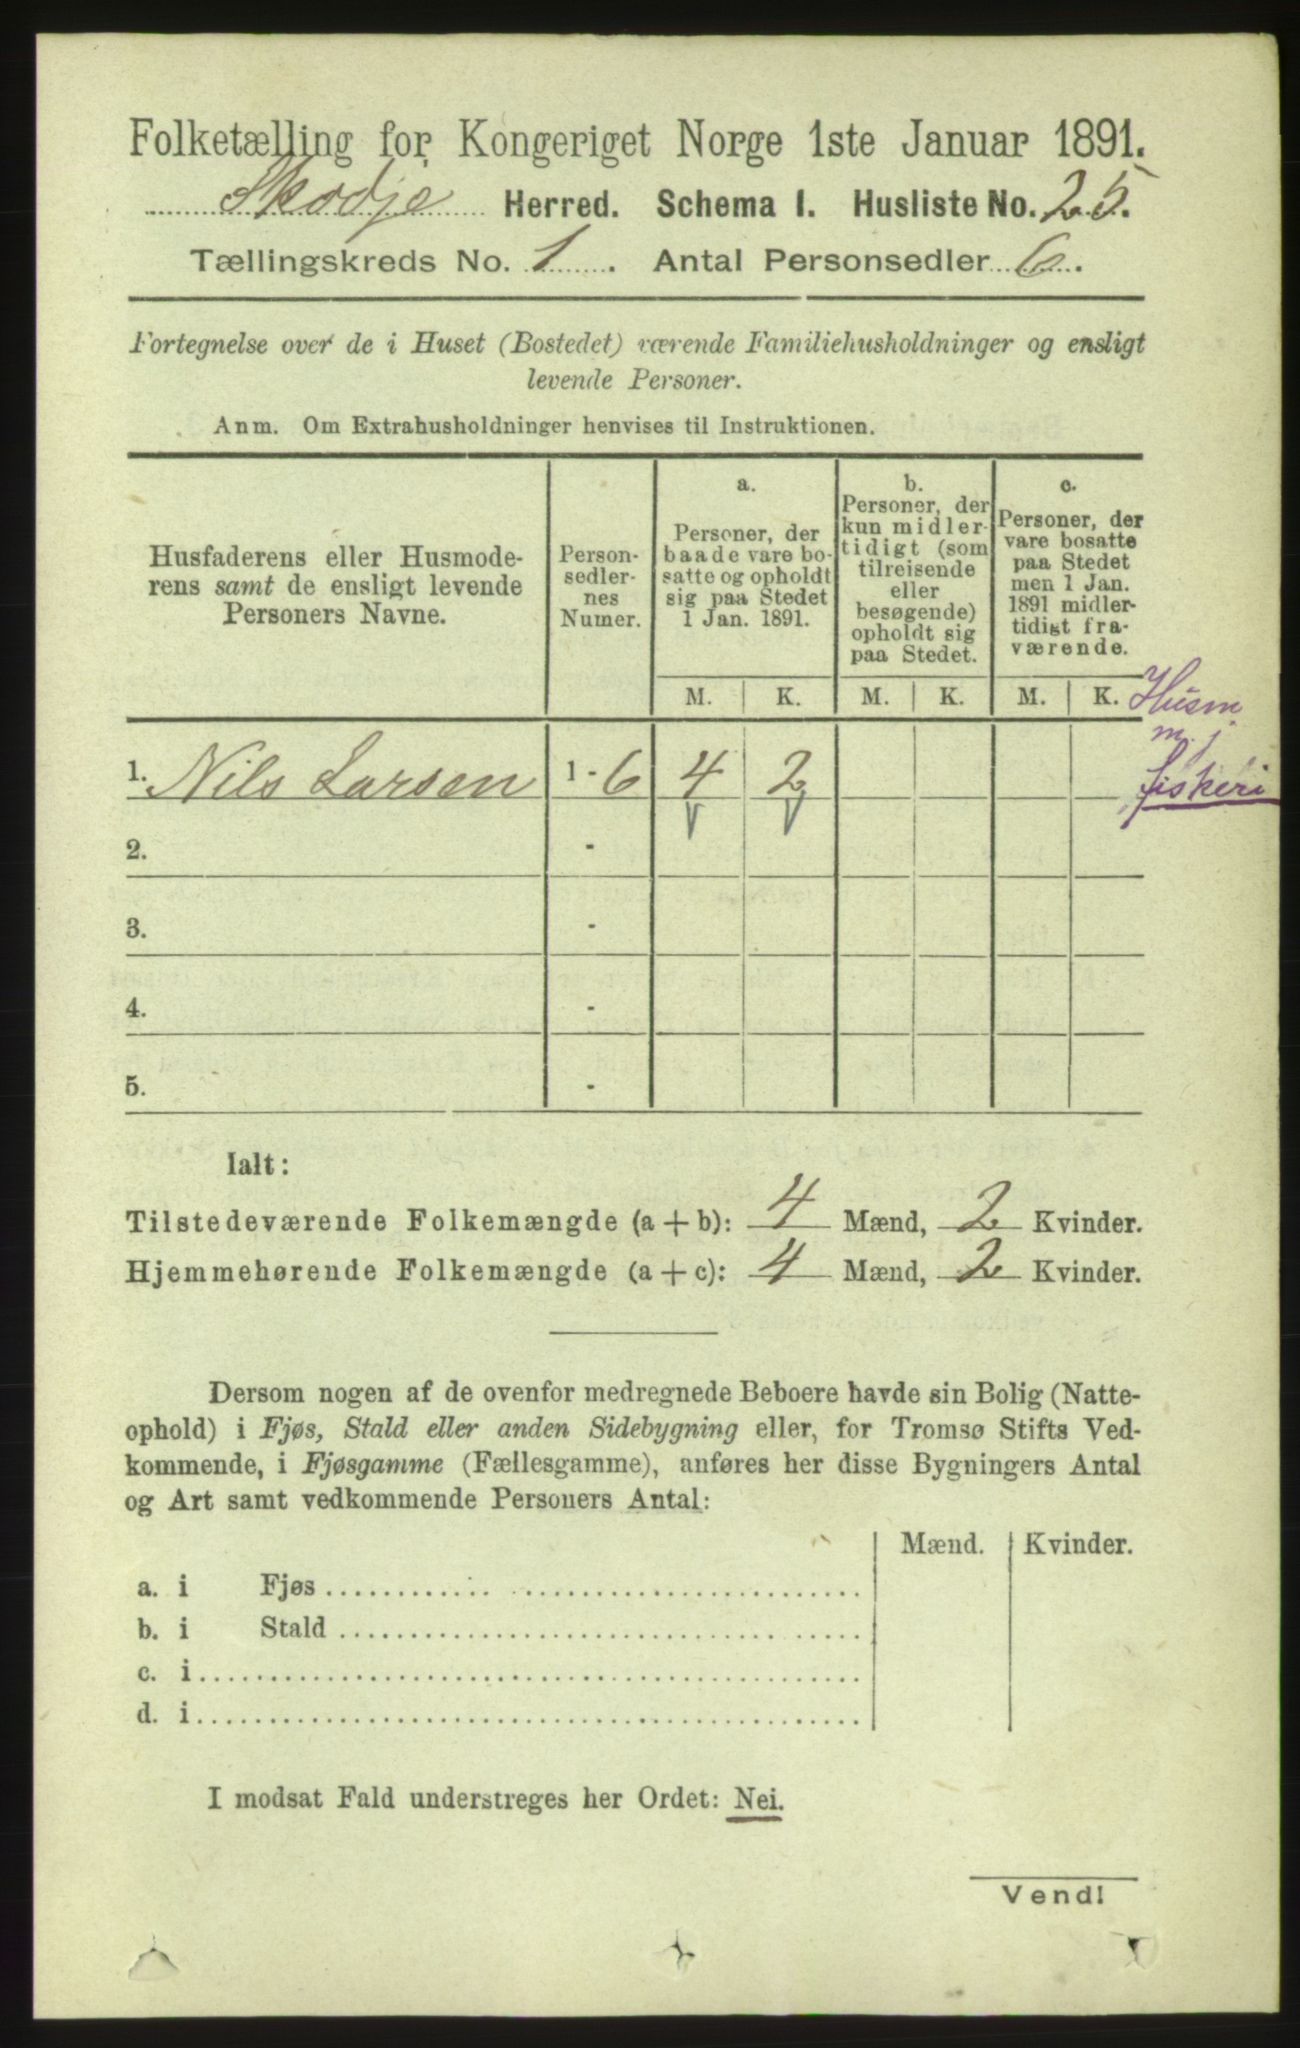 Folketælling for Kongeriget Norge 1ste Januar 1891.
Skodje Herred. Schema I. Husliste No. 25.
Tællingskreds No. 1. Antal Personsedler 6.
Fortegnelse over de i Huset (Bostedet) værende Familiehusholdninger og ensligt
levende Personer.
Anm. Om Extrahusholdninger henvises til Instruktionen.
Husfaderens eller Husmode-
rens samt de ensligt levende
Personers Navne.
Person-
sedler-
nes
Numer.
a.
Personer, der
baade vare bo-
satte og opholdt
sig paa Stedet
1 Jan. 1891.
b.
Personer, der
kun midler-
tidigt (som
tilreisende
eller
besøgende)
opholdt sig
paa Stedet.
c.
Personer, der
vare bosatte
paa Stedet
men 1 Jan.
1891 midler-
tidigt fra-
værende.
M. K. M. K. M. K.
Husm.
m. j.
fiskeri
1. Nils Larsen 1 - 6 4 2
2. -
3. -
4. -
5. -
Ialt:
Tilstedeværende Folkemængde (a + b): 4 Mænd, 2 Kvinder.
Hjemmehørende Folkemængde (a + c): 4 Mænd, 2 Kvinder.
Dersom nogen af de ovenfor medregnede Beboere havde sin Bolig (Natte-
ophold) i Fjøs, Stald eller anden Sidebygning eller, for Tromsø Stifts Ved-
kommende, i Fjøsgamme (Fællesgamme), anføres her disse Bygningers Antal
og Art samt vedkommende Personers Antal:
Mænd. Kvinder.
a. i Fjøs
b. i Stald
c. i
d. i
I modsat Fald understreges her Ordet: Nei.
Vend!